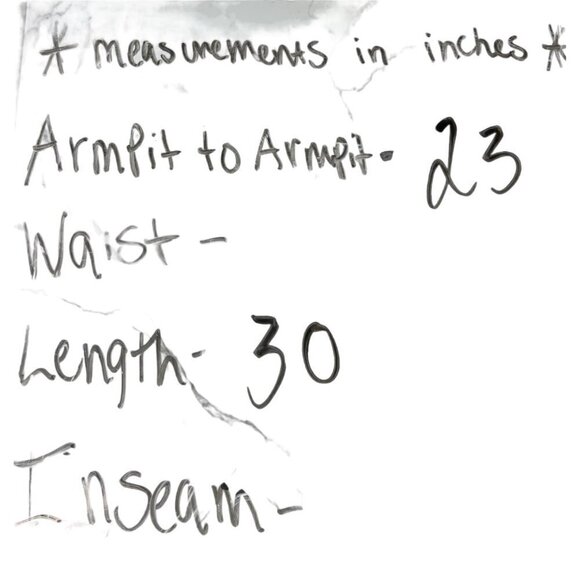 * measurements in inches *
ArmPit to Armpit - 23
Waist -
Length - 30
Inseam -